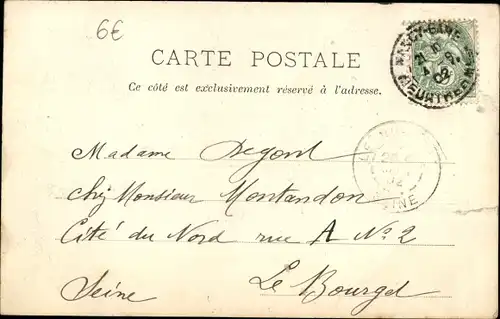 6€
CARTE POSTALE
Ce côté est exclusivement réservé à l'adresse.
NANCY-GARE
MEURTHE
02
Madame Degont
chez Monsieur Montandon
Cité du Nord rue A No 2
Le Bourget
Seine